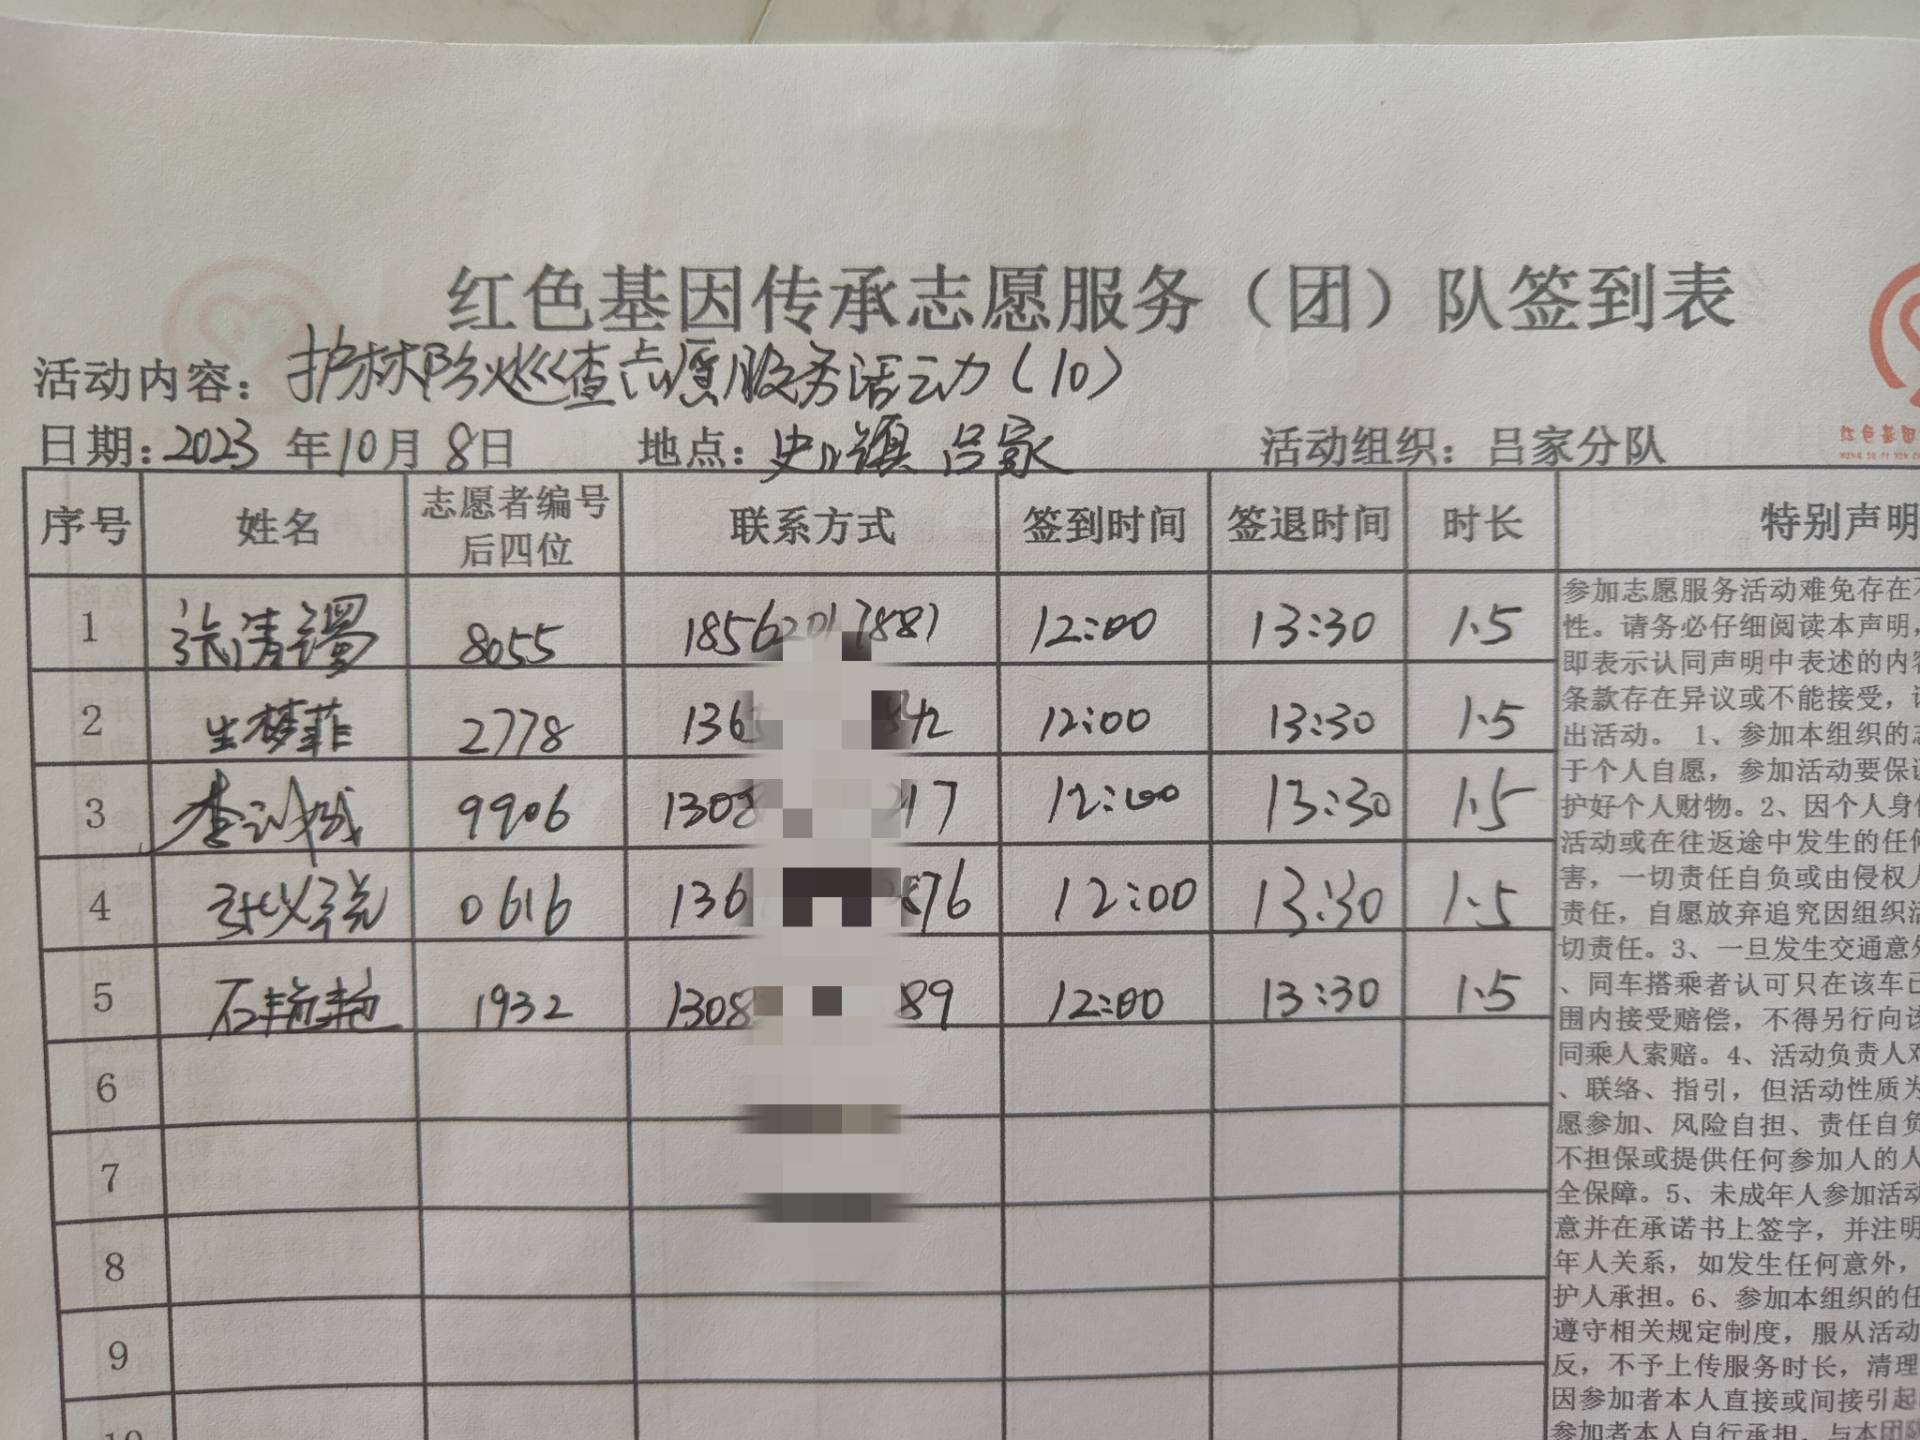 红色基因传承志愿服务（团）队签到表
活动内容：护林防火巡查志愿服务活动（10）
日期：2023年10月8日 地点：史口镇 吕家 活动组织：吕家分队
序号 姓名 志愿者编号后四位 联系方式 签到时间 签退时间 时长 特别声明
1 张清 8055 18562017887 12:00 13:30 1.5
2 生梦菲 2778 136 42 12:00 13:30 1.5
3 李 9906 1308 17 12:00 13:30 1.5
4 0616 136 876 12:00 13:30 1.5
5 石艳艳 1932 1308 89 12:00 13:30 1.5
6
7
8
9
10
参加志愿服务活动难免存在
性。请务必仔细阅读本声明，
即表示认同声明中表述的内容
条款存在异议或不能接受，
出活动。 1、参加本组织的志
于个人自愿，参加活动要保证
护好个人财物。2、因个人身体
活动或在往返途中发生的任何
害，一切责任自负或由侵权人
责任，自愿放弃追究因组织活
切责任。3、一旦发生交通意外
、同车搭乘者认可只在该车已
围内接受赔偿，不得另行向该
同乘人索赔。4、活动负责人对
、联络、指引，但活动性质为
愿参加、风险自担、责任自负
不担保或提供任何参加人的人
全保障。5、未成年人参加活动
意并在承诺书上签字，并注明
年人关系，如发生任何意外，
护人承担。6、参加本组织的任
遵守相关规定制度，服从活动
反，不予上传服务时长，清理
因参加者本人直接或间接引起
参加者本人自行承担，与本团队